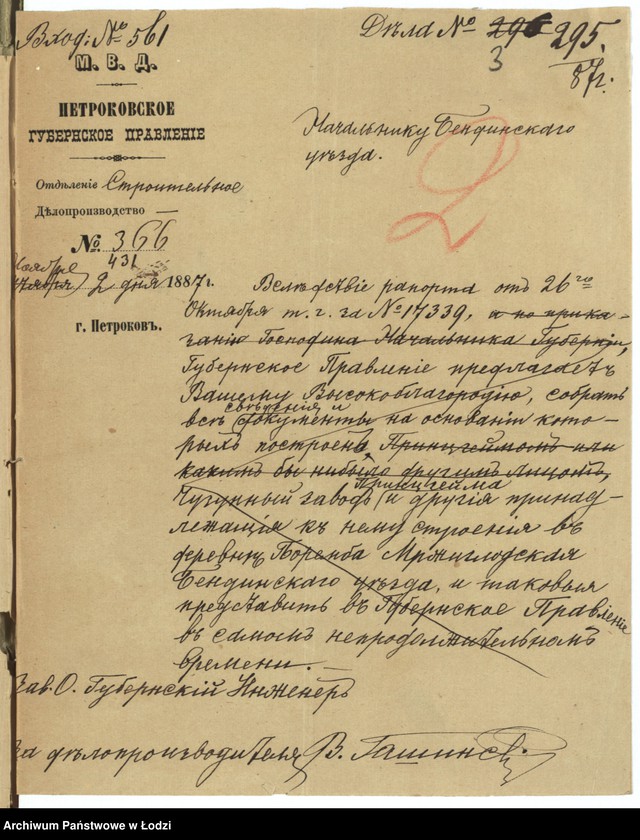 Вход: № 561
Дѣла № 296 295.
3 87 г.
М. В. Д.
ПЕТРОКОВСКОЕ
ГУБЕРНСКОЕ ПРАВЛЕНІЕ
Отдѣленіе Строительное
Дѣлопроизводство —
№ 366
431
Ноября
2 дня 1887 г.
г. Петроковъ.
Начальнику Бендинскаго
уѣзда.
2
Вслѣдствіе рапорта отъ 26 го
Октября т. г. за № 17339, и по прика-
занію Господина Начальника Губерніи,
Губернское Правленіе предлагаетъ
Вашему Высокоблагородію, собрать
свѣдѣнія и
всѣ документы на основаніи кото-
рыхъ построенъ Принцгеймомъ или
какимъ бы нибыло другимъ лицомъ,
Принцгейма
Чугунный заводъ и другія принад-
лежащія къ нему строенія въ
деревнѣ Поремба Мржиглодская
Бендинскаго уѣзда, и таковыя
представить въ Губернское Правленіе
въ самомъ непродолжительномъ
времени. —
Зав. О. Губернскій Инженеръ
За дѣлопроизводителя В.
Archiwum Państwowe w Łodzi